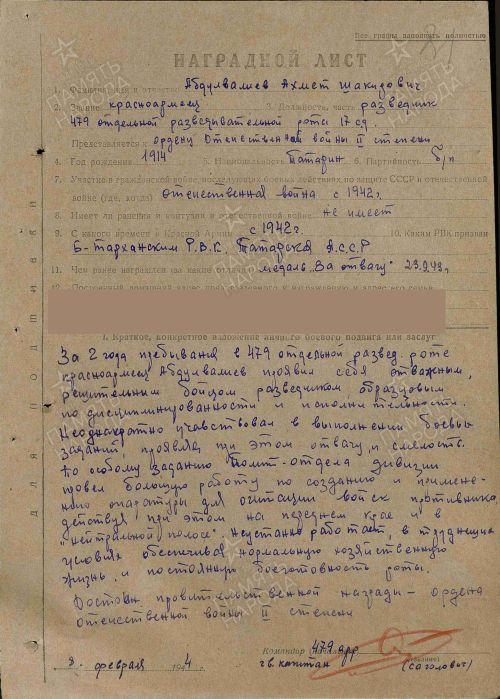 Все графы заполнять полностью
НАГРАДНОЙ ЛИСТ
1. Фамилия, имя и отчество Абдулвалиев Ахмет Шакидович
2. Звание красноармеец 3. Должность, часть разведчик
479 отдельной разведывательной роты 17 сд.
Представляется к ордену Отечественной войны II степени
4. Год рождения 1914 5. Национальность Татарин 6. Партийность б/п
7. Участие в гражданской войне, последующих боевых действиях по защите СССР и отечественной
войне (где, когда) отечественная война с 1942г.
8. Имеет ли ранения и контузии в отечественной войне не имеет
9. С какого времени в Красной Армии с 1942г. 10. Каким РВК призван
Б-Тарханским Р.В.К. Татарской А.С.С.Р
11. Чем ранее награжден (за какие отличия) медаль "За отвагу" 23.9.43г
12. Постоянный домашний адрес представляемого к награждению и адрес его семьи
I. Краткое, конкретное изложение личного боевого подвига или заслуг
За 2 года пребывания в 479 отдельной развед. роте
красноармеец Абдулвалиев проявил себя отважным,
решительным бойцом разведчиком образцовым
по дисциплинированности и исполнительности.
Неоднократно участвовал в выполнении боевых
заданий, проявляя при этом отвагу и смелость.
По особому заданию Полит-отдела дивизии
провел большую работу по созданию и примене-
нию аппаратуры для агитации войск противника
действуя при этом на переднем крае и в
"нейтральной полосе". Неустанно работает, в труднейших
условиях обеспечивая нормальную хозяйственную
жизнь, и постоянную боеготовность роты.
Достоин правительственной награды - ордена
отечественной войны II степени
Командир 479 орр
гв. капитан (Соголович)
9. февраля 1944 г.
ДЛЯ ПОДШИВКИ
ПАМЯТЬ НАРОДА